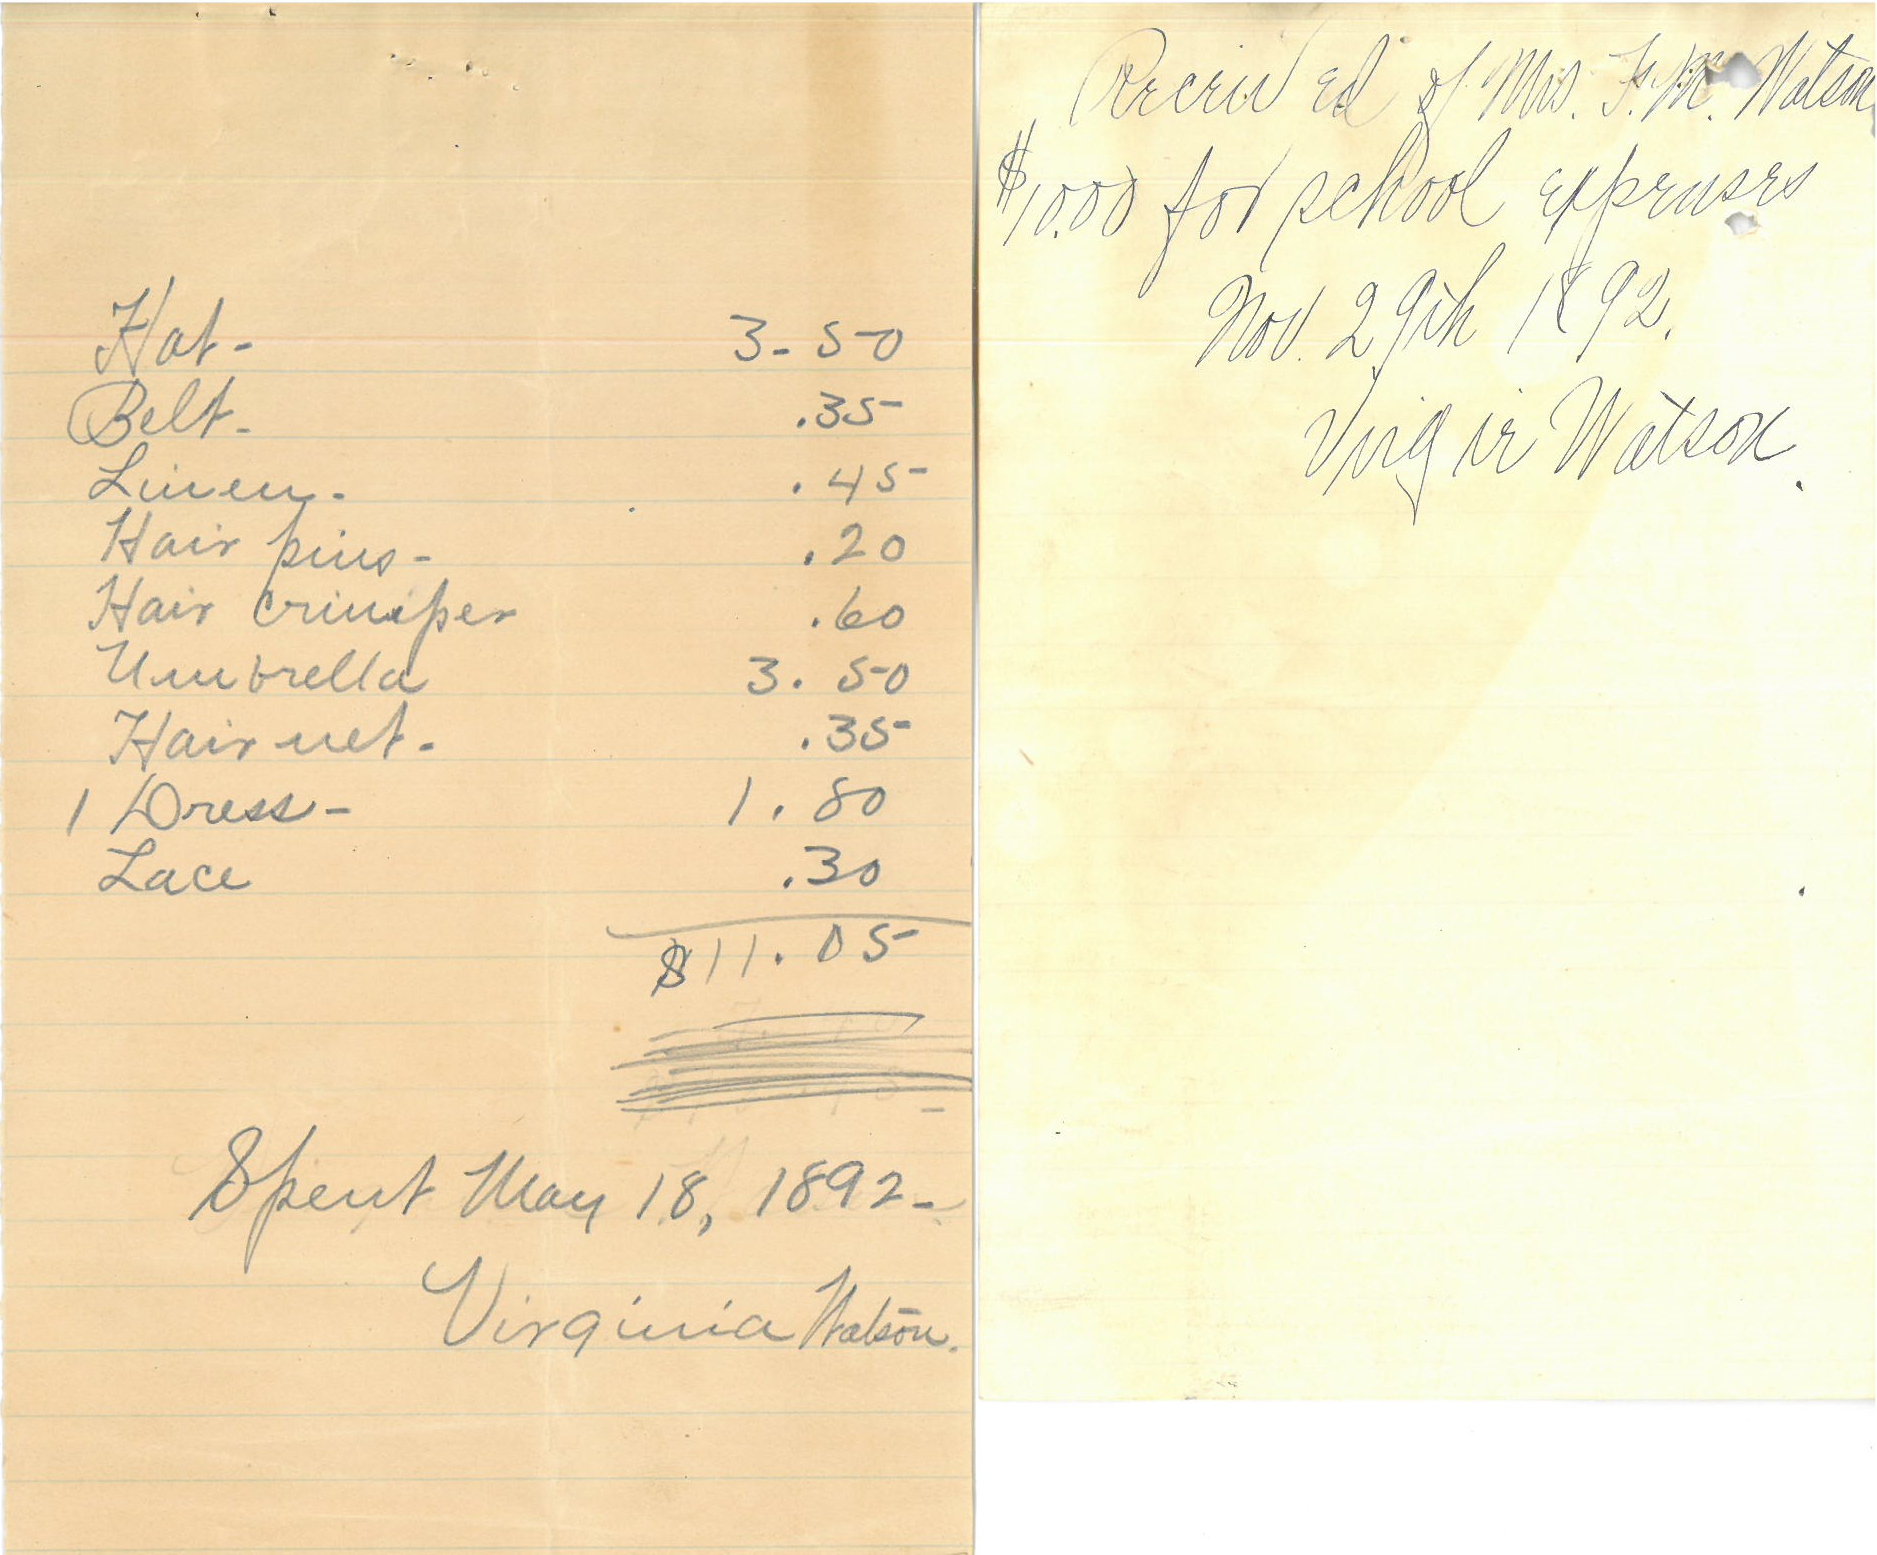 Hat- 3-50
Belt- .35
Linen- .45
Hair pins- .20
Hair crimper .60
Umbrella 3.50
Hair net- .35
1 Dress- 1.80
Lace .30
$11.05
Spent May 18, 1892-
Virginia Watson.
Received of Mrs. F. M. Watson
$10.00 for school expenses
Nov. 29th 1892.
Virgie Watson.